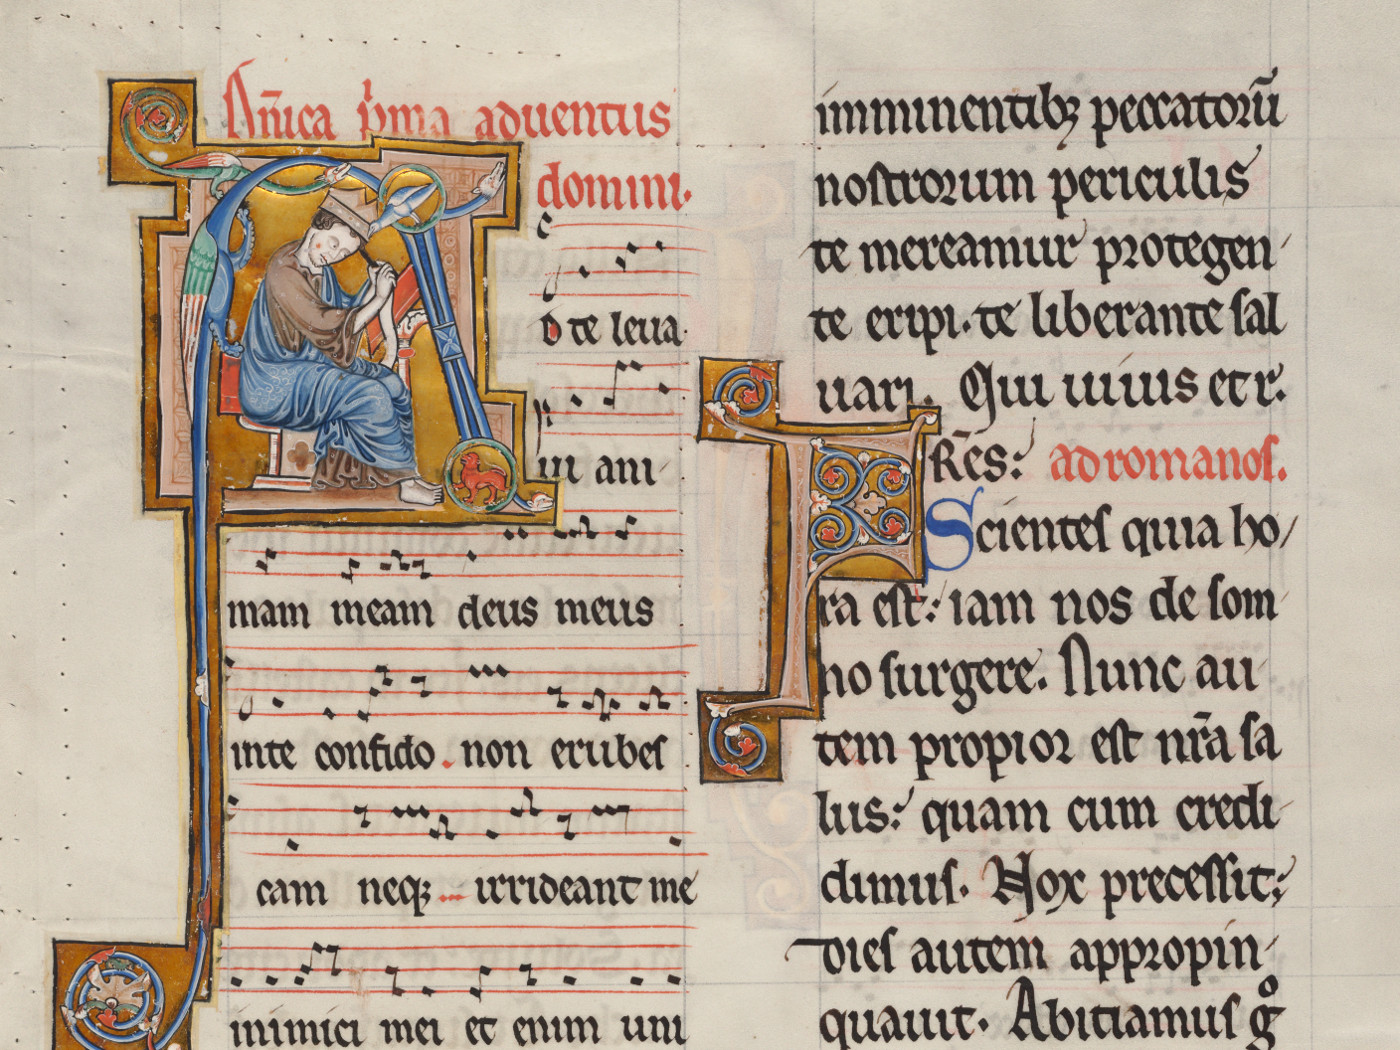 Dñica p̃ma aduentus
domini.
D te leua
ui ani
mam meam deus meus
inte confido . non erubes
cam neqꝫ irrideant me
inimici mei et enim uni
imminentibꝫ peccatorū
nostrorum periculis
te mereamur protegen
te eripi. te liberante sal
uari. Qui uiuis et r.
FRẽs: ad romanos.
Scientes quia ho
ra est: iam nos de som
no surgere. Nunc au
tem propior est nr̃a sa
lus: quam cum credi
dimus. Nox precessit:
dies autem appropin
quauit. Abiciamus gͦ